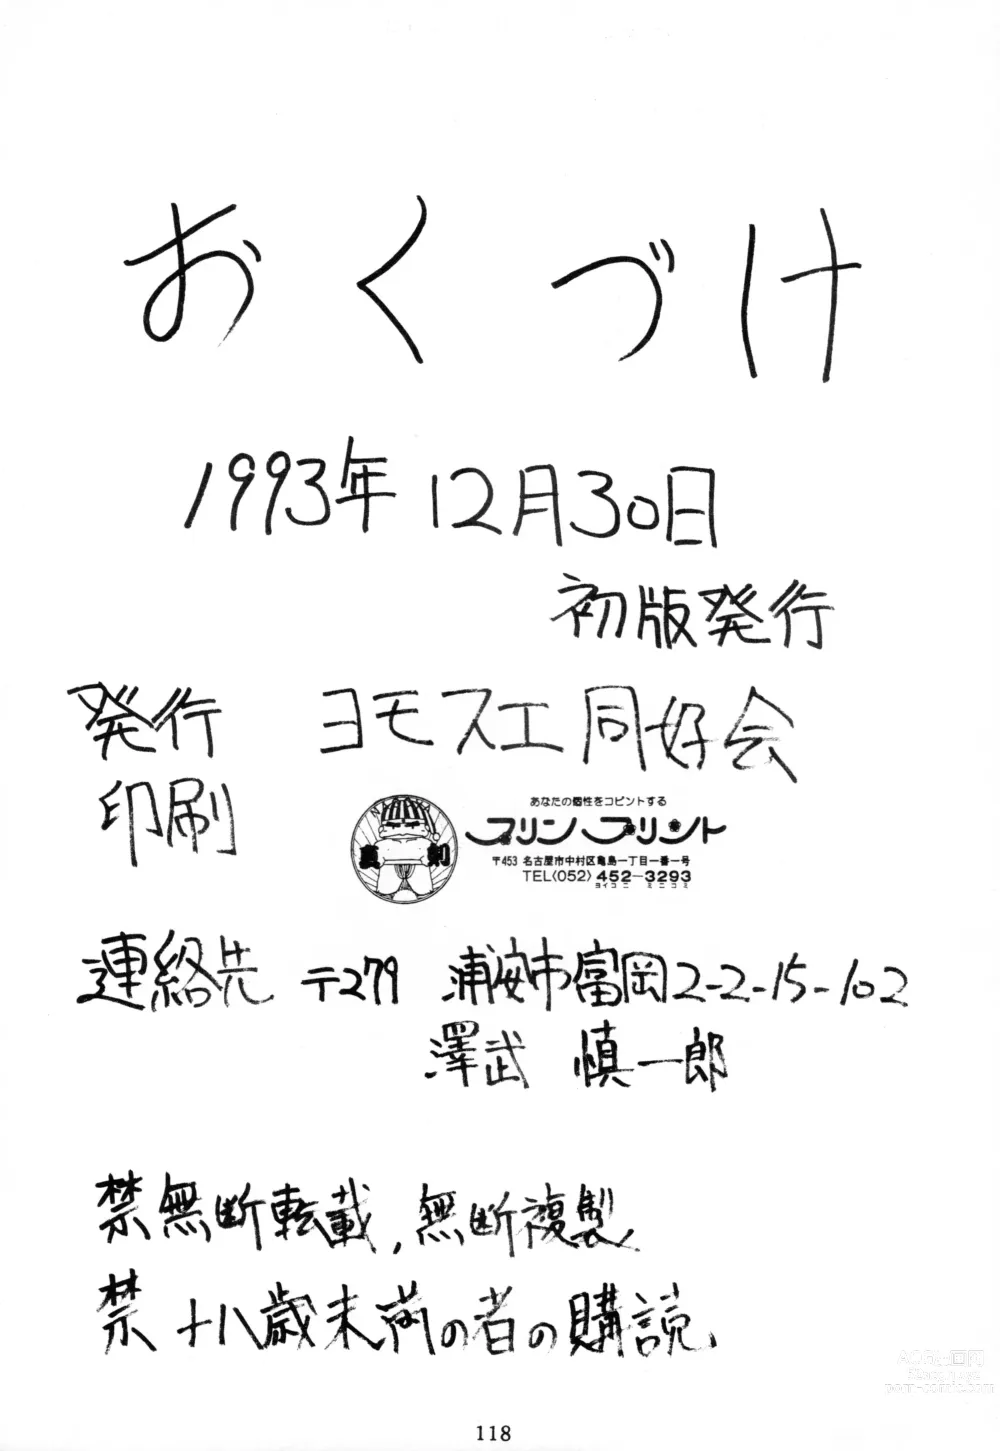 おくづけ
1993年 12月30日
初版発行
発行 ヨモスエ同好会
印刷
真 剣
あなたの個性をコピントする
プリンプリント
〒453 名古屋市中村区亀島一丁目一番一号
TEL(052)452-3293
ヨイコニ ミニコミ
連絡先 〒279 浦安市富岡2-2-15-102
澤武 慎一郎
禁無断転載,無断複製
禁十八歳未満の者の購読、
118